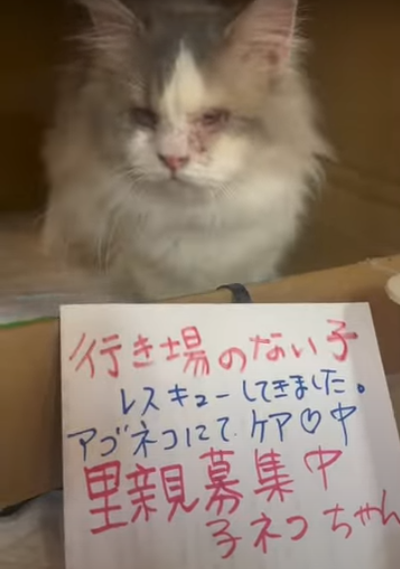 行き場のない子
レスキューしてきました。
アゴネコにて ケア♡中
里親募集中
子ネコちゃん